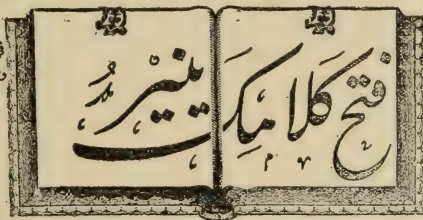 فتح كلامك ينير